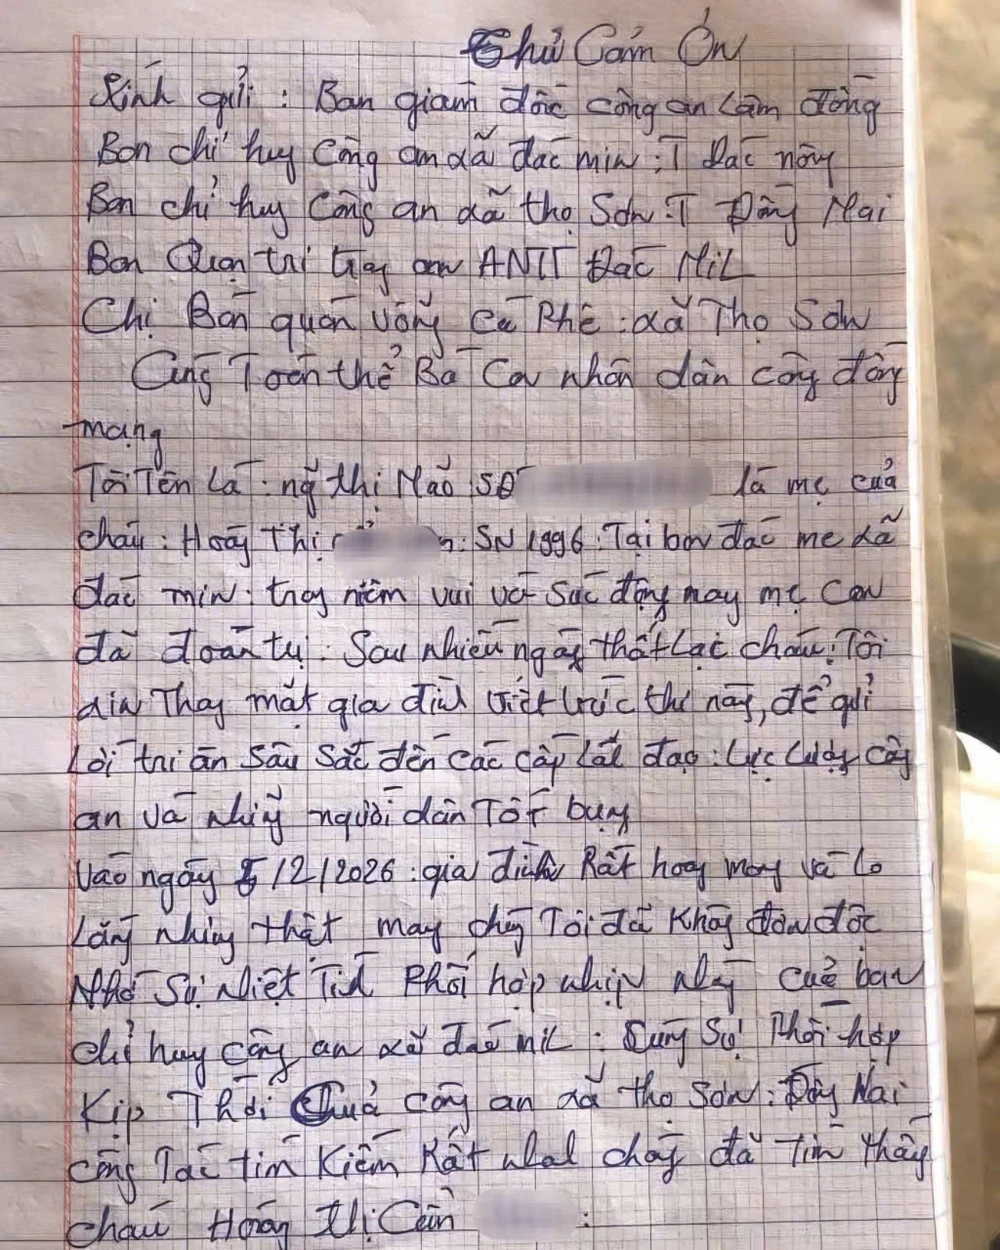 Thử Cảm Ơn
Kính gửi : Ban giam đốc công an Lâm đồng
Ban chỉ huy Công an xã đắc min : T Đắc nông
Ban chỉ huy Công an xã thọ Sơn : T Đồng Nai
Ban Quản trị trang ANTT Đắc MiL
Chị Bán quán võng Cà Phê : xã Thọ Sơn
Cùng Toàn thể Bà Con nhân dân cộng đồng
mạng
Tôi Tên Là : ng thị Mão SĐ là mẹ của
cháu : Hoàng Thị n : SN 1996 : Tại bon đắc me xã
đắc min : trong niềm vui và xúc động nay mẹ Con
đã đoàn tụ : Sau nhiều ngày thất Lạc cháu : Tôi
xin Thay mặt gia đình viết bức thư này, để gửi
Lời tri ân Sâu Sắc đến các cấp Lãnh đạo : Lực Lượng công
an và những người dân Tốt bụng
Vào ngày 5/2/2026 : gia đình Rất hoang mang và Lo
Lắng nhưng thật may chúng Tôi đã Không đơn độc
Nhờ Sự nhiệt Tình Phối hợp nhịp nhàng của ban
chỉ huy công an xã đắc miL : Cùng Sự Phối hợp
Kịp Thời Của công an xã thọ Sơn : Đồng Nai
công Tác tìm Kiếm Rất nhanh chóng đã Tìm Thấy
cháu Hoàng Thị :